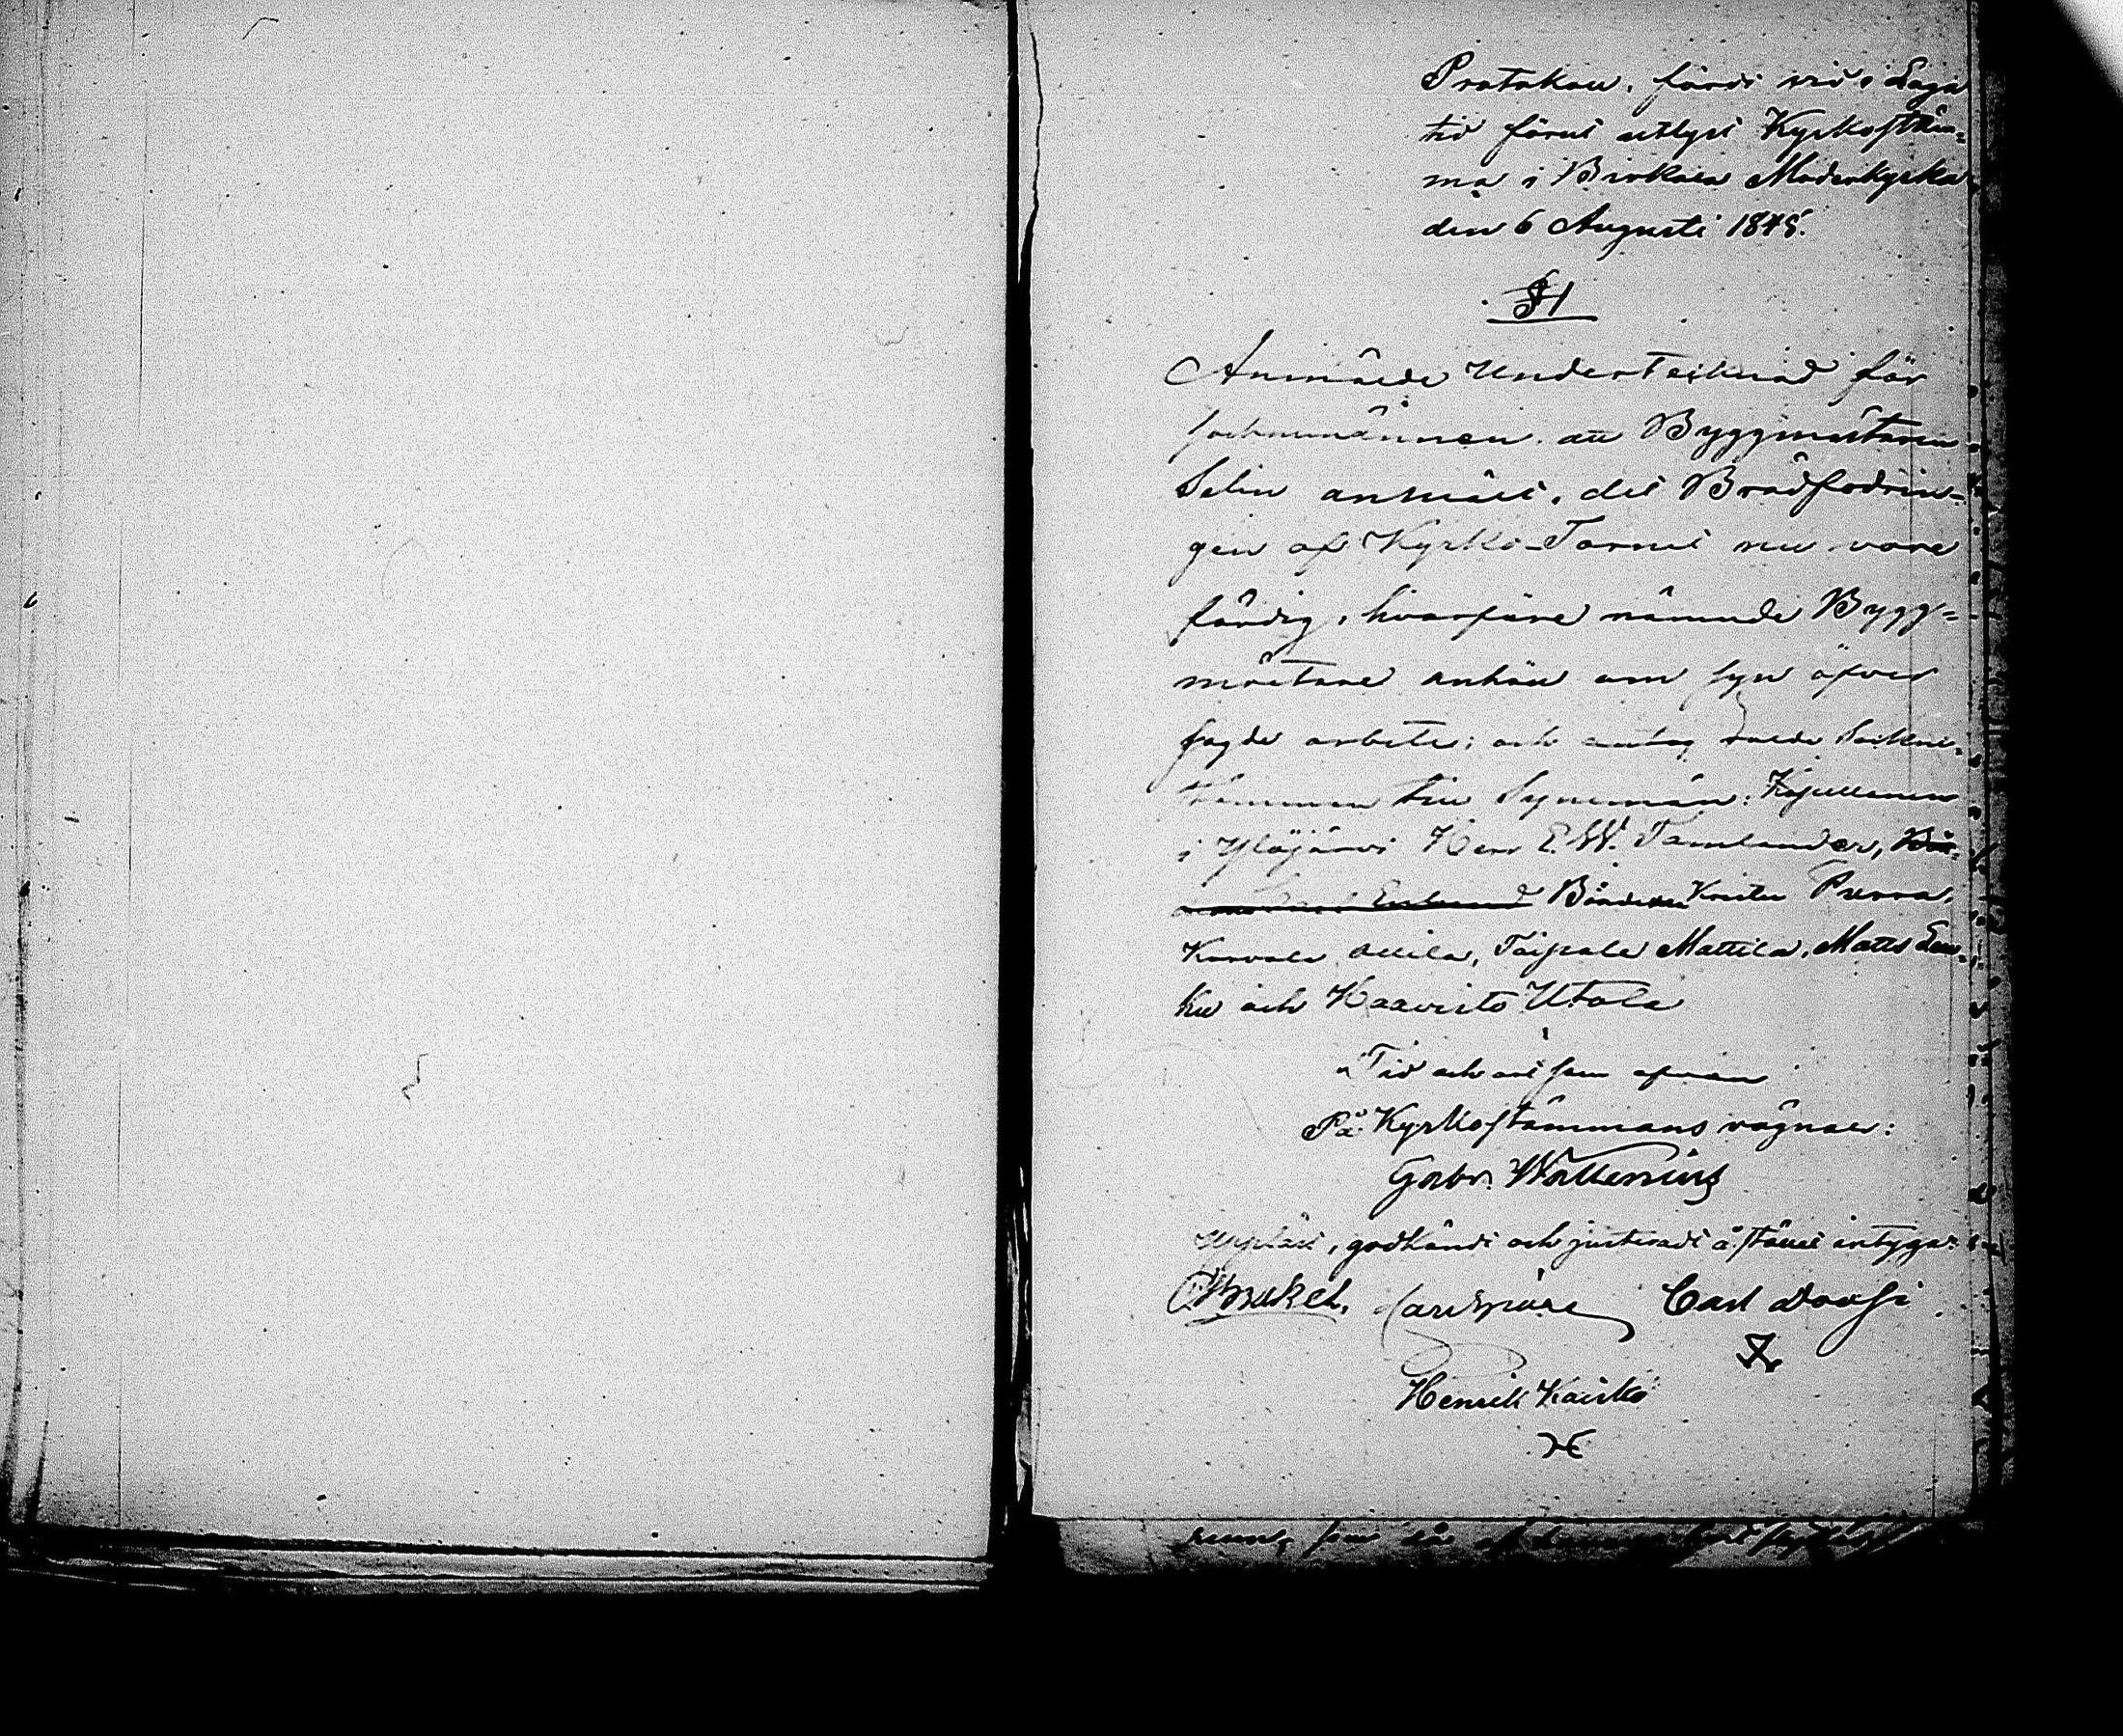 Protokoll, fördt vid i Laga
tid förut utlyst Kyrkostäm-
ma i Birkala Moderkyrka
den 6 Augusti 1848.
§ 1
Anmälde Undertecknad för
socknemännen, att Byggmästaren
Selin anmält, det Brädfodrin-
gen af Kyrko-Tornet nu vore
färdig, hvarföre nämnde Bygg-
mästare anhöll om syn öfver
sagde arbete; och antog Sockne-
stämman till Synemän: Kapellanen
i Ylöjärvi Herr E. W. Tamlander, Bön-
Enlund Bönderne Krister Purra,
Karvala Ollila, Taipale Mattila, Matts Len-
ku och Haavisto Utala
Tid och ort som ofvan
På Kyrkostämmans vägnar:
Gabr. Wallenius
Uppläst, godkändt och justeradt å stället intyga:
Carl
Henrik Kaisko
som då af